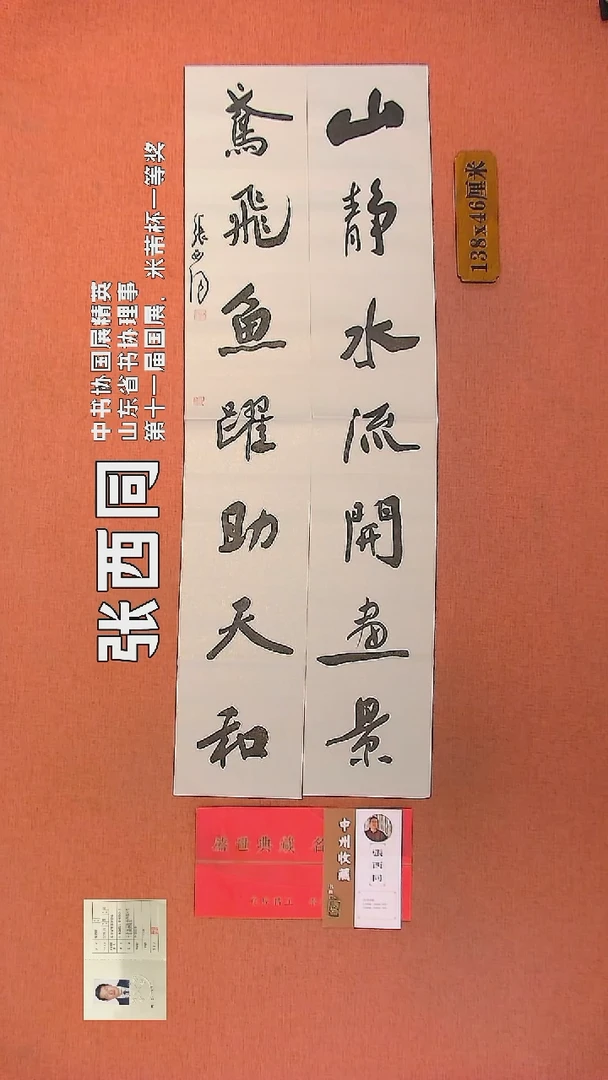 山静水流開畫景
鳶飛魚躍助天和
張西同
138x46厘米
张西同
中书协国展精英
山东省书协理事
第十一届国展，米芾杯一等奖
中州收藏
張西同